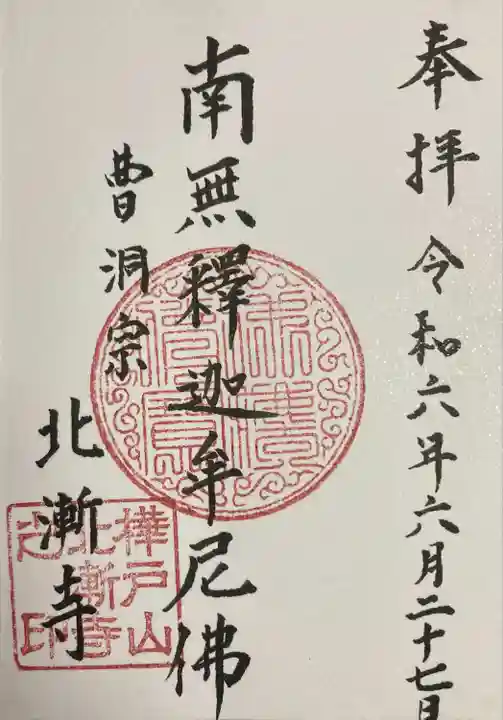 奉拝 令和六年六月二十七日
南無釋迦牟尼佛
曹洞宗
北漸寺
樺戸山
北漸寺
印